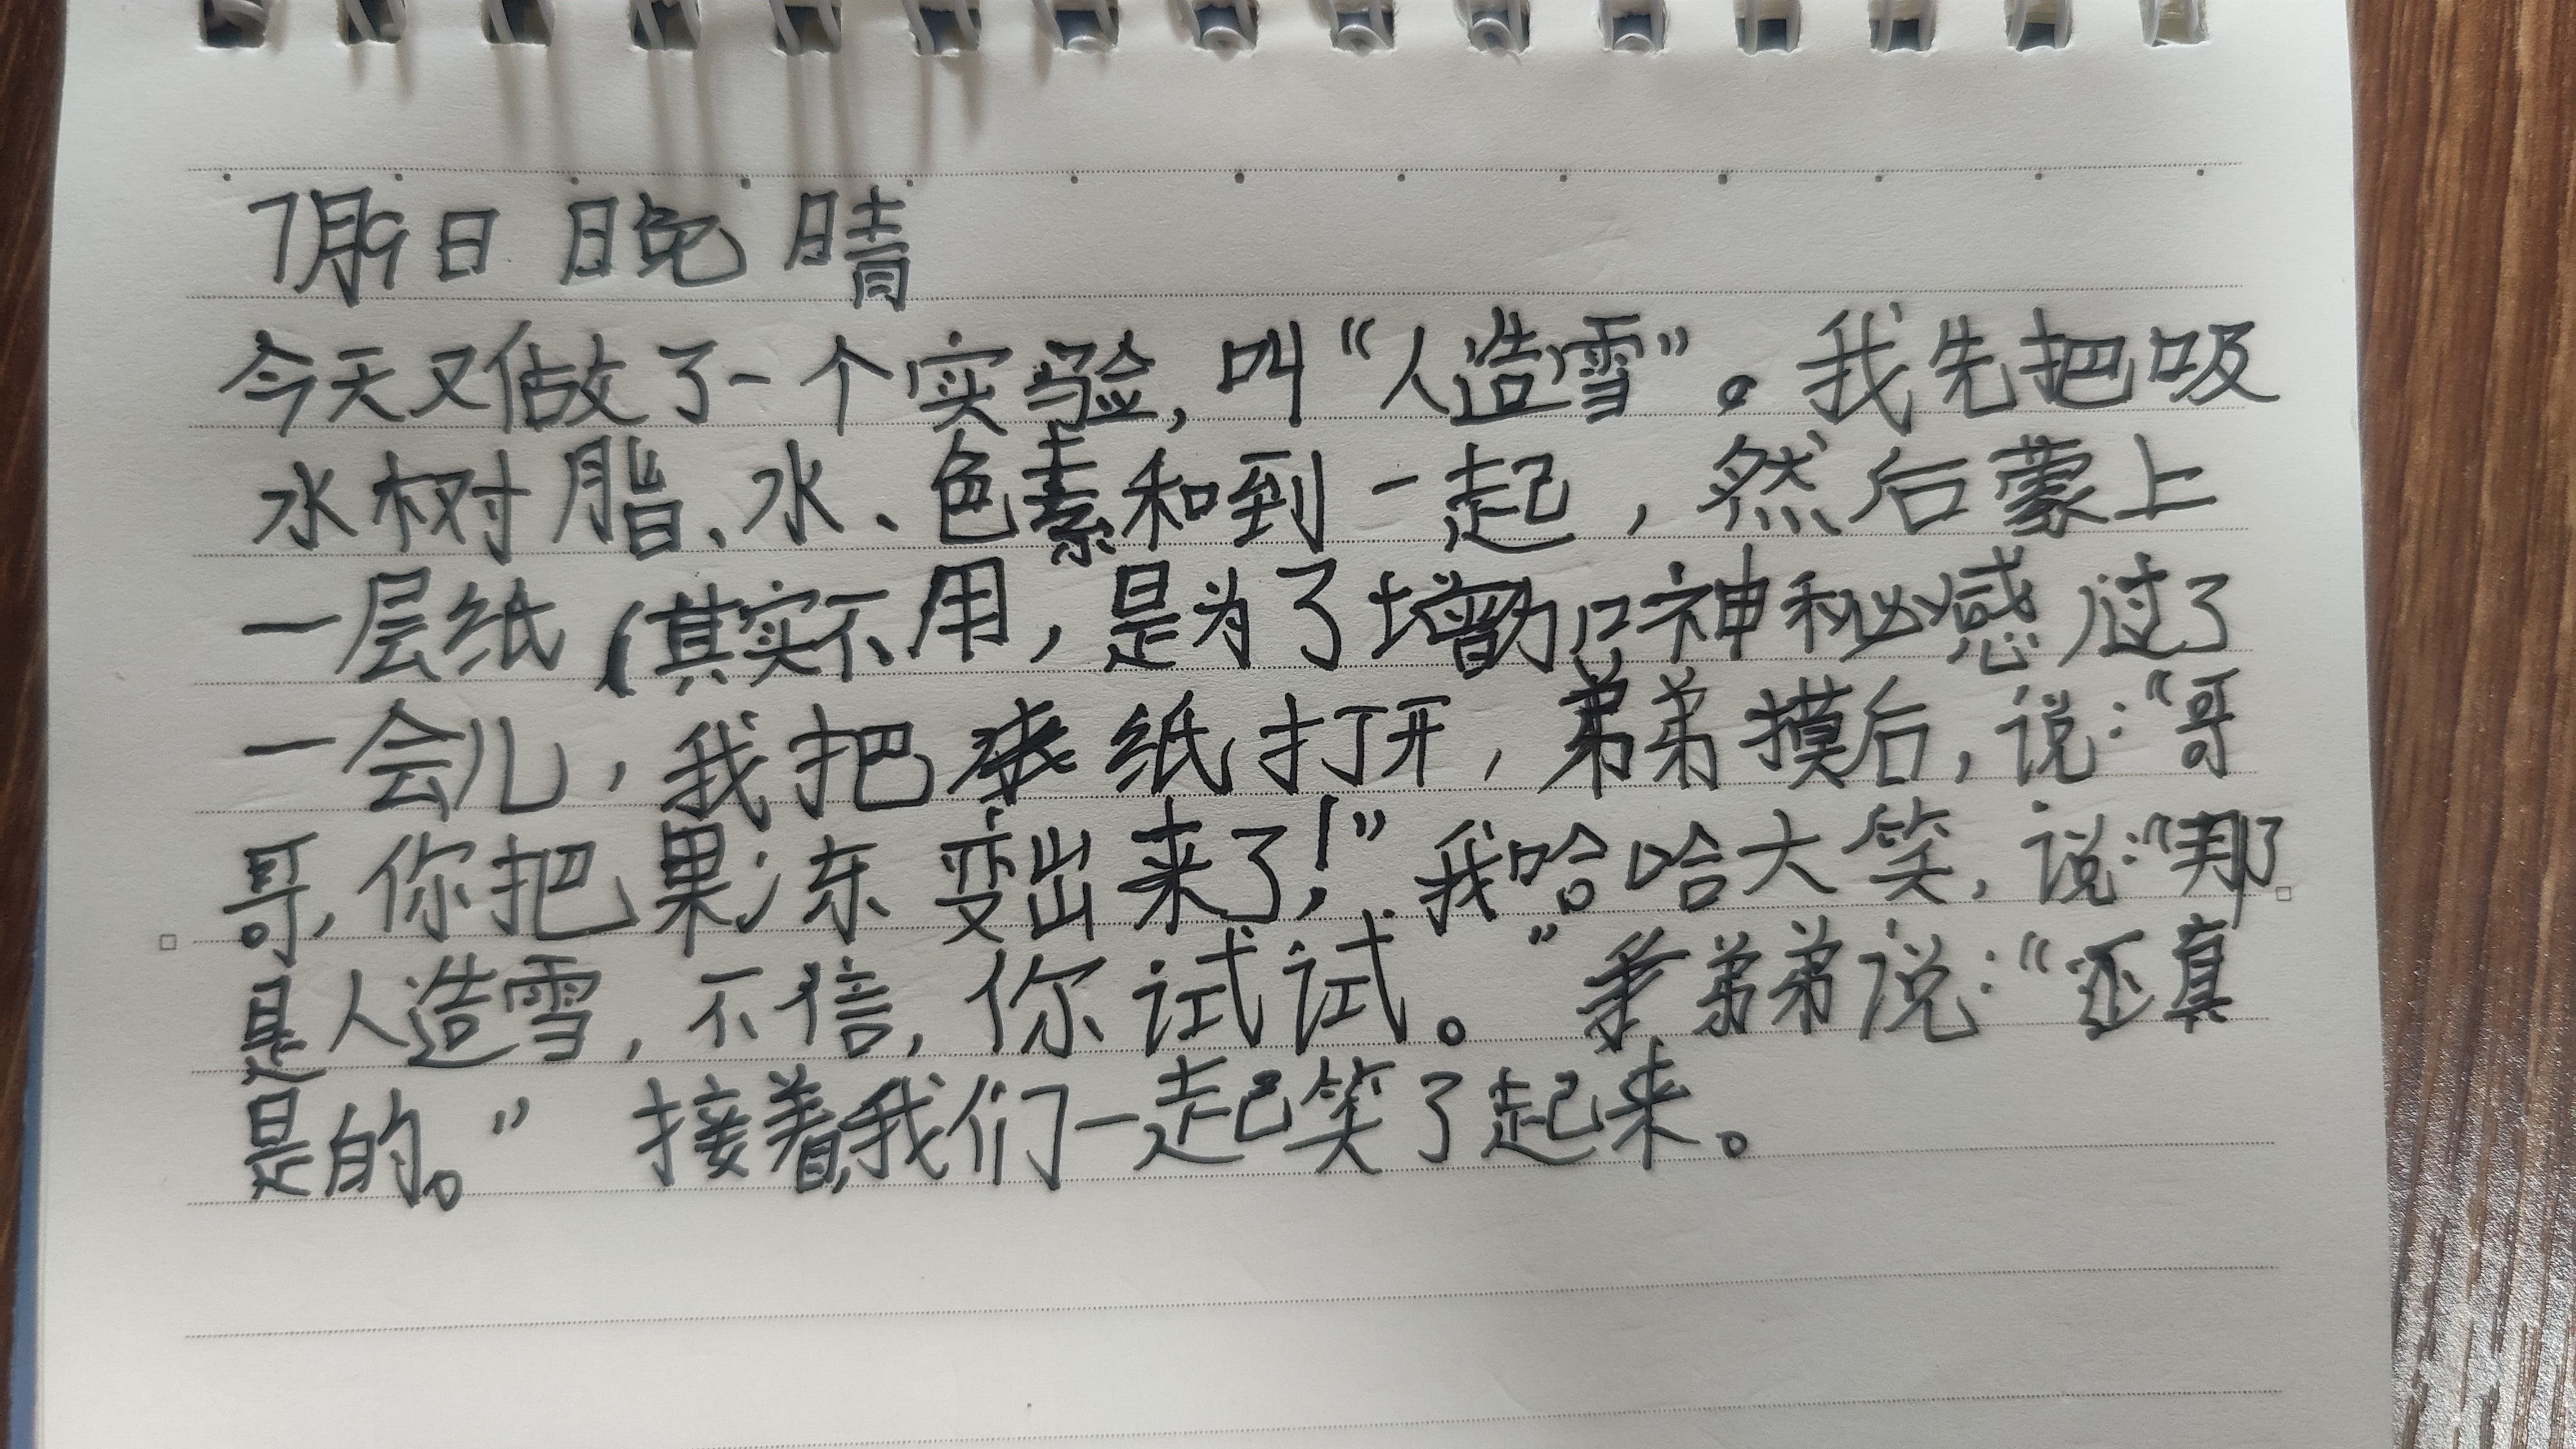 7月9日 晚 晴
今天又做了一个实验,叫“人造雪”。我先把吸
水树脂、水、色素和到一起,然后蒙上
一层纸(其实不用,是为了增加神秘感)过了
一会儿,我把纸打开,弟弟摸后,说:“哥
哥,你把果冻变出来了!”我哈哈大笑,说:“那
是人造雪,不信,你试试。”弟弟说:“还真
是的。”接着,我们一起笑了起来。